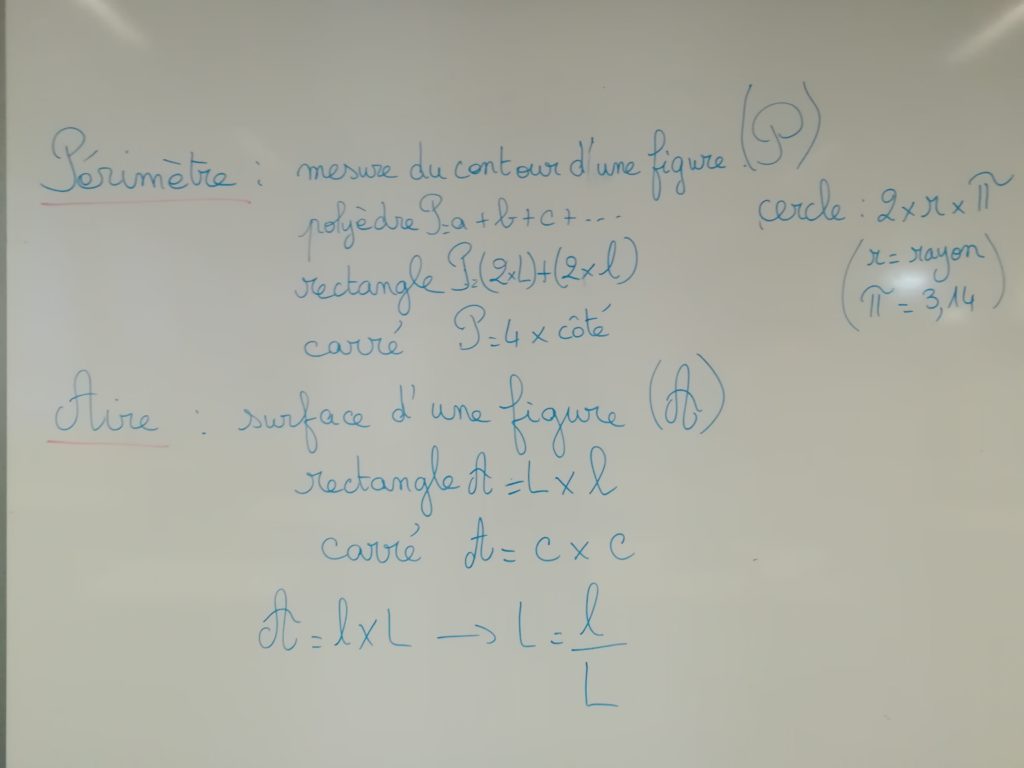 Périmètre : mesure du contour d'une figure. (P)
polyèdre P=a+b+c+...
rectangle P=(2xL)+(2xl)
carré P=4 x côté
cercle : 2xrxπ
(r=rayon
π=3,14)
Aire : surface d'une figure (A)
rectangle A=Lxl
carré A= c x c
A=lxL → L= l/L